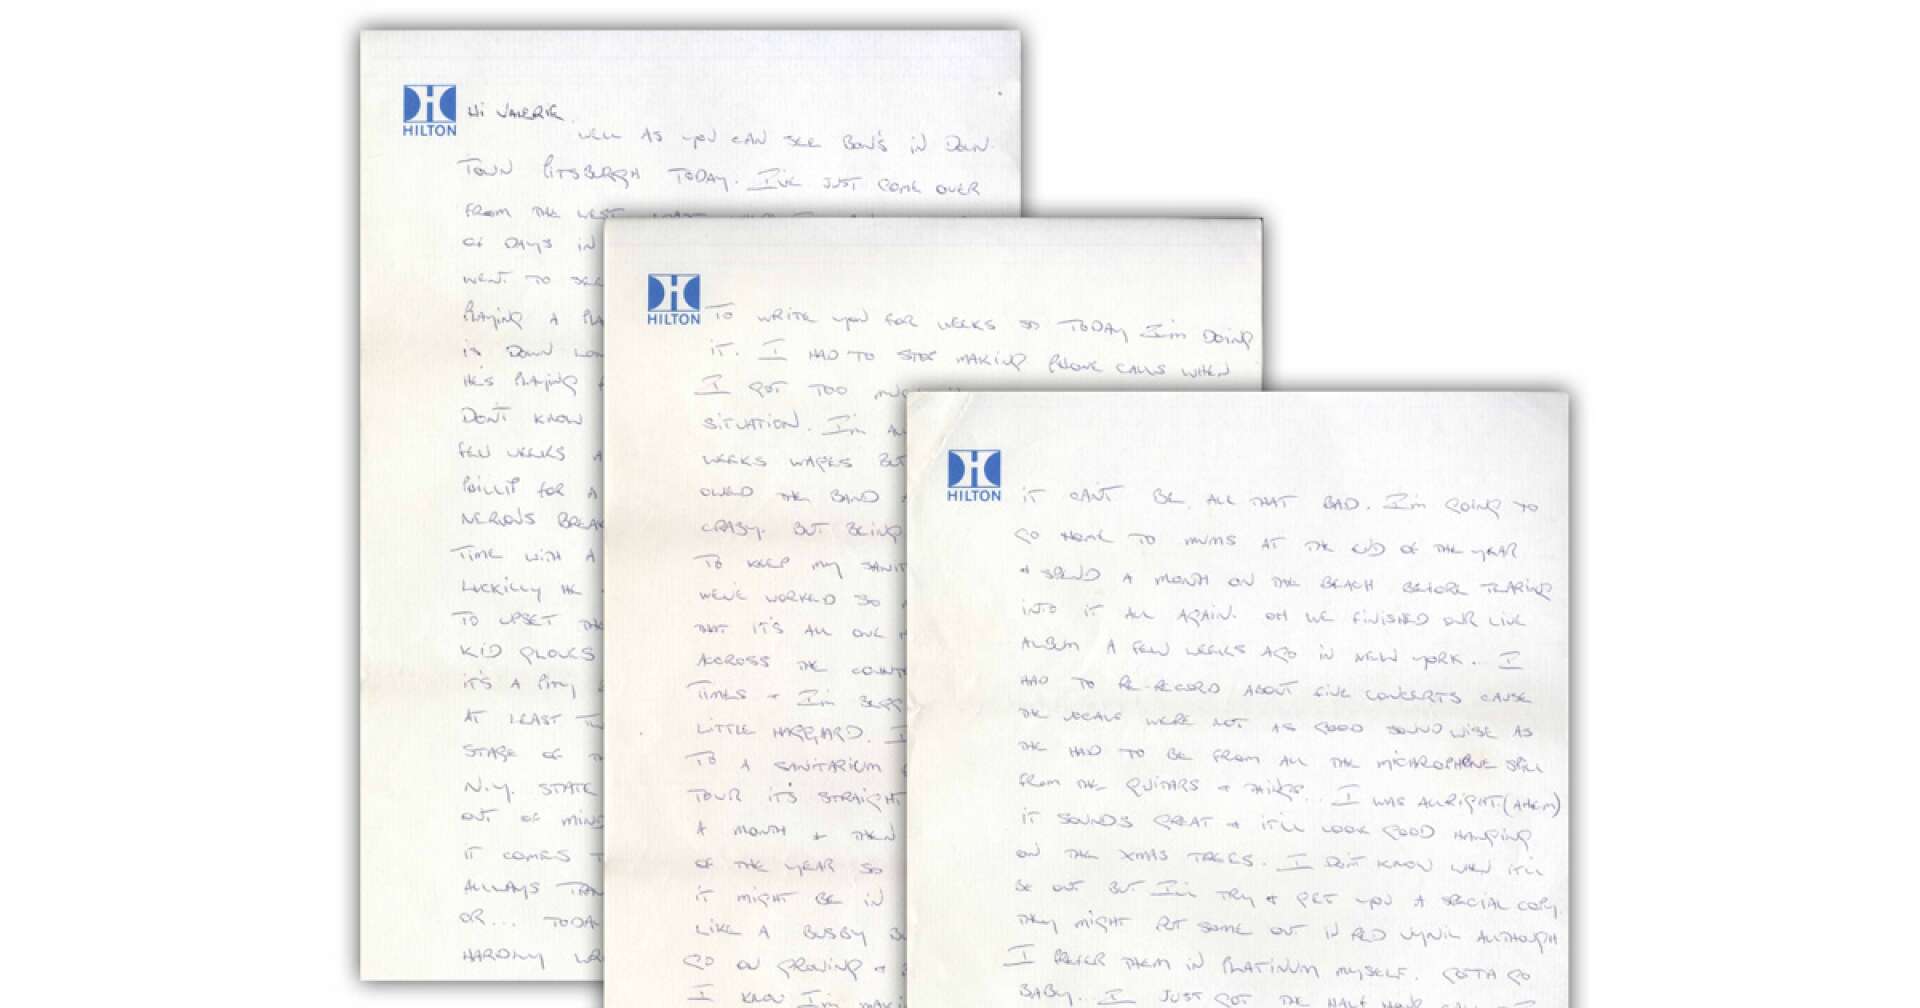 HILTON
Hi VALERIE.
WELL AS YOU CAN SEE BON'S IN DOWN-
TOWN PITSBURGH TODAY. I'VE JUST COME OVER
FROM THE WEST
OF DAYS IN
WENT TO SEE
PLAYING A
IS DOWN
HE'S PLAYING
DON'T KNOW
FEW WEEKS A
FOR A
NERVOUS
TIME WITH A
LUCKILLY HE
TO UPSET THE
KID GLOVES
IT'S A PITY
AT LEAST
STAGE OF
N.Y. STATE
OUT OF MIND
IT COMES
ALLWAYS
OR... TODAY
HARDLY
HILTON
TO WRITE YOU FOR WEEKS SO TODAY I'm DOING
IT. I HAD TO STOP MAKING PHONE CALLS WHEN
I GOT TOO
SITUATION. I'm
WEEKS WAGES BUT
OWED THE BAND
CRASY. BUT BEING
TO KEEP MY
WE'VE WORKED SO
THAT IT'S ALL ONE
ACROSS THE
TIMES + I'm
LITTLE HAGGARD. I
TO A SANITARIUM
TOUR IT'S STRAIGHT
A MONTH + THEN
OF THE YEAR SO
IT MIGHT BE IN
LIKE A BUSBY
GO ON GROWING +
I KNOW I'm
HILTON
IT CAN'T BE ALL THAT BAD. I'm GOING TO
GO HOME TO MUMS AT THE END OF THE YEAR
+ SPEND A MONTH ON THE BEACH BEFORE TEARING
INTO IT ALL AGAIN. OH WE FINISHED OUR LIVE
ALBUM A FEW WEEKS AGO IN NEW YORK. I
HAD TO RE-RECORD ABOUT FIVE CONCERTS CAUSE
THE VOCALS WERE NOT AS GOOD SOUND WISE AS
THE HAD TO BE FROM ALL THE MICHROPHONE SPILL
FROM THE GUITARS + THINGS.. I WAS ALLRIGHT. (AHEM)
IT SOUNDS GREAT + IT'LL LOOK GOOD HANGING
ON THE XMAS TREES. I DON'T KNOW WHEN IT'LL
BE OUT BUT I'LL TRY + GET YOU A SPECIAL COPY.
THEY MIGHT PUT SOME OUT IN RED VYNIL ALTHOUGH
I PREFER THEM IN PLATINUM MYSELF. GOTTA GO
BABY. I JUST GOT THE HALF HOUR CALL